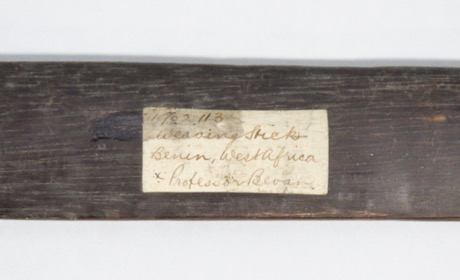 1922.113
Weaving Sticks
Benin, West Africa
x Professor Bevan